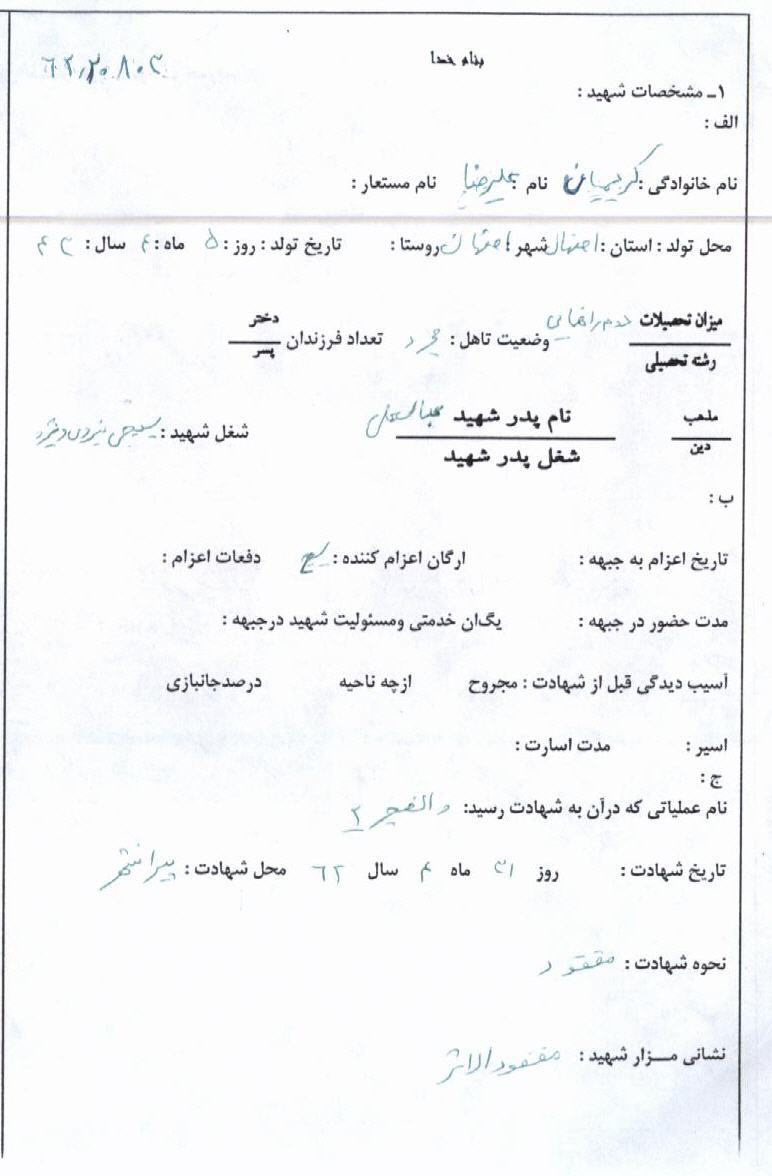 بنام خدا
۶۲,۲۰۸۰۲
۱ـ مشخصات شهید :
الف :
نام خانوادگی : کریمیان نام : علیرضا نام مستعار :
محل تولد : استان : اصفهان شهر : اصفهان روستا : تاریخ تولد : روز : ۵ ماه : ۴ سال : ۴۳
میزان تحصیلات دوم راهنمایی وضعیت تاهل : مجرد تعداد فرزندان دختر
رشته تحصیلی پسر
مذهب نام پدر شهید شغل شهید : بسیجی
دین شغل پدر شهید
ب :
تاریخ اعزام به جبهه : ارگان اعزام کننده : بسیج دفعات اعزام :
مدت حضور در جبهه : یگان خدمتی ومسئولیت شهید درجبهه :
آسیب دیدگی قبل از شهادت : مجروح ازچه ناحیه درصدجانبازی
اسیر : مدت اسارت :
ج :
نام عملیاتی که درآن به شهادت رسید: والفجر ۲
تاریخ شهادت : روز ۳۱ ماه ۴ سال ۶۲ محل شهادت : پیرانشهر
نحوه شهادت : مفقود
نشانی مـــزار شهید : مفقودالاثر